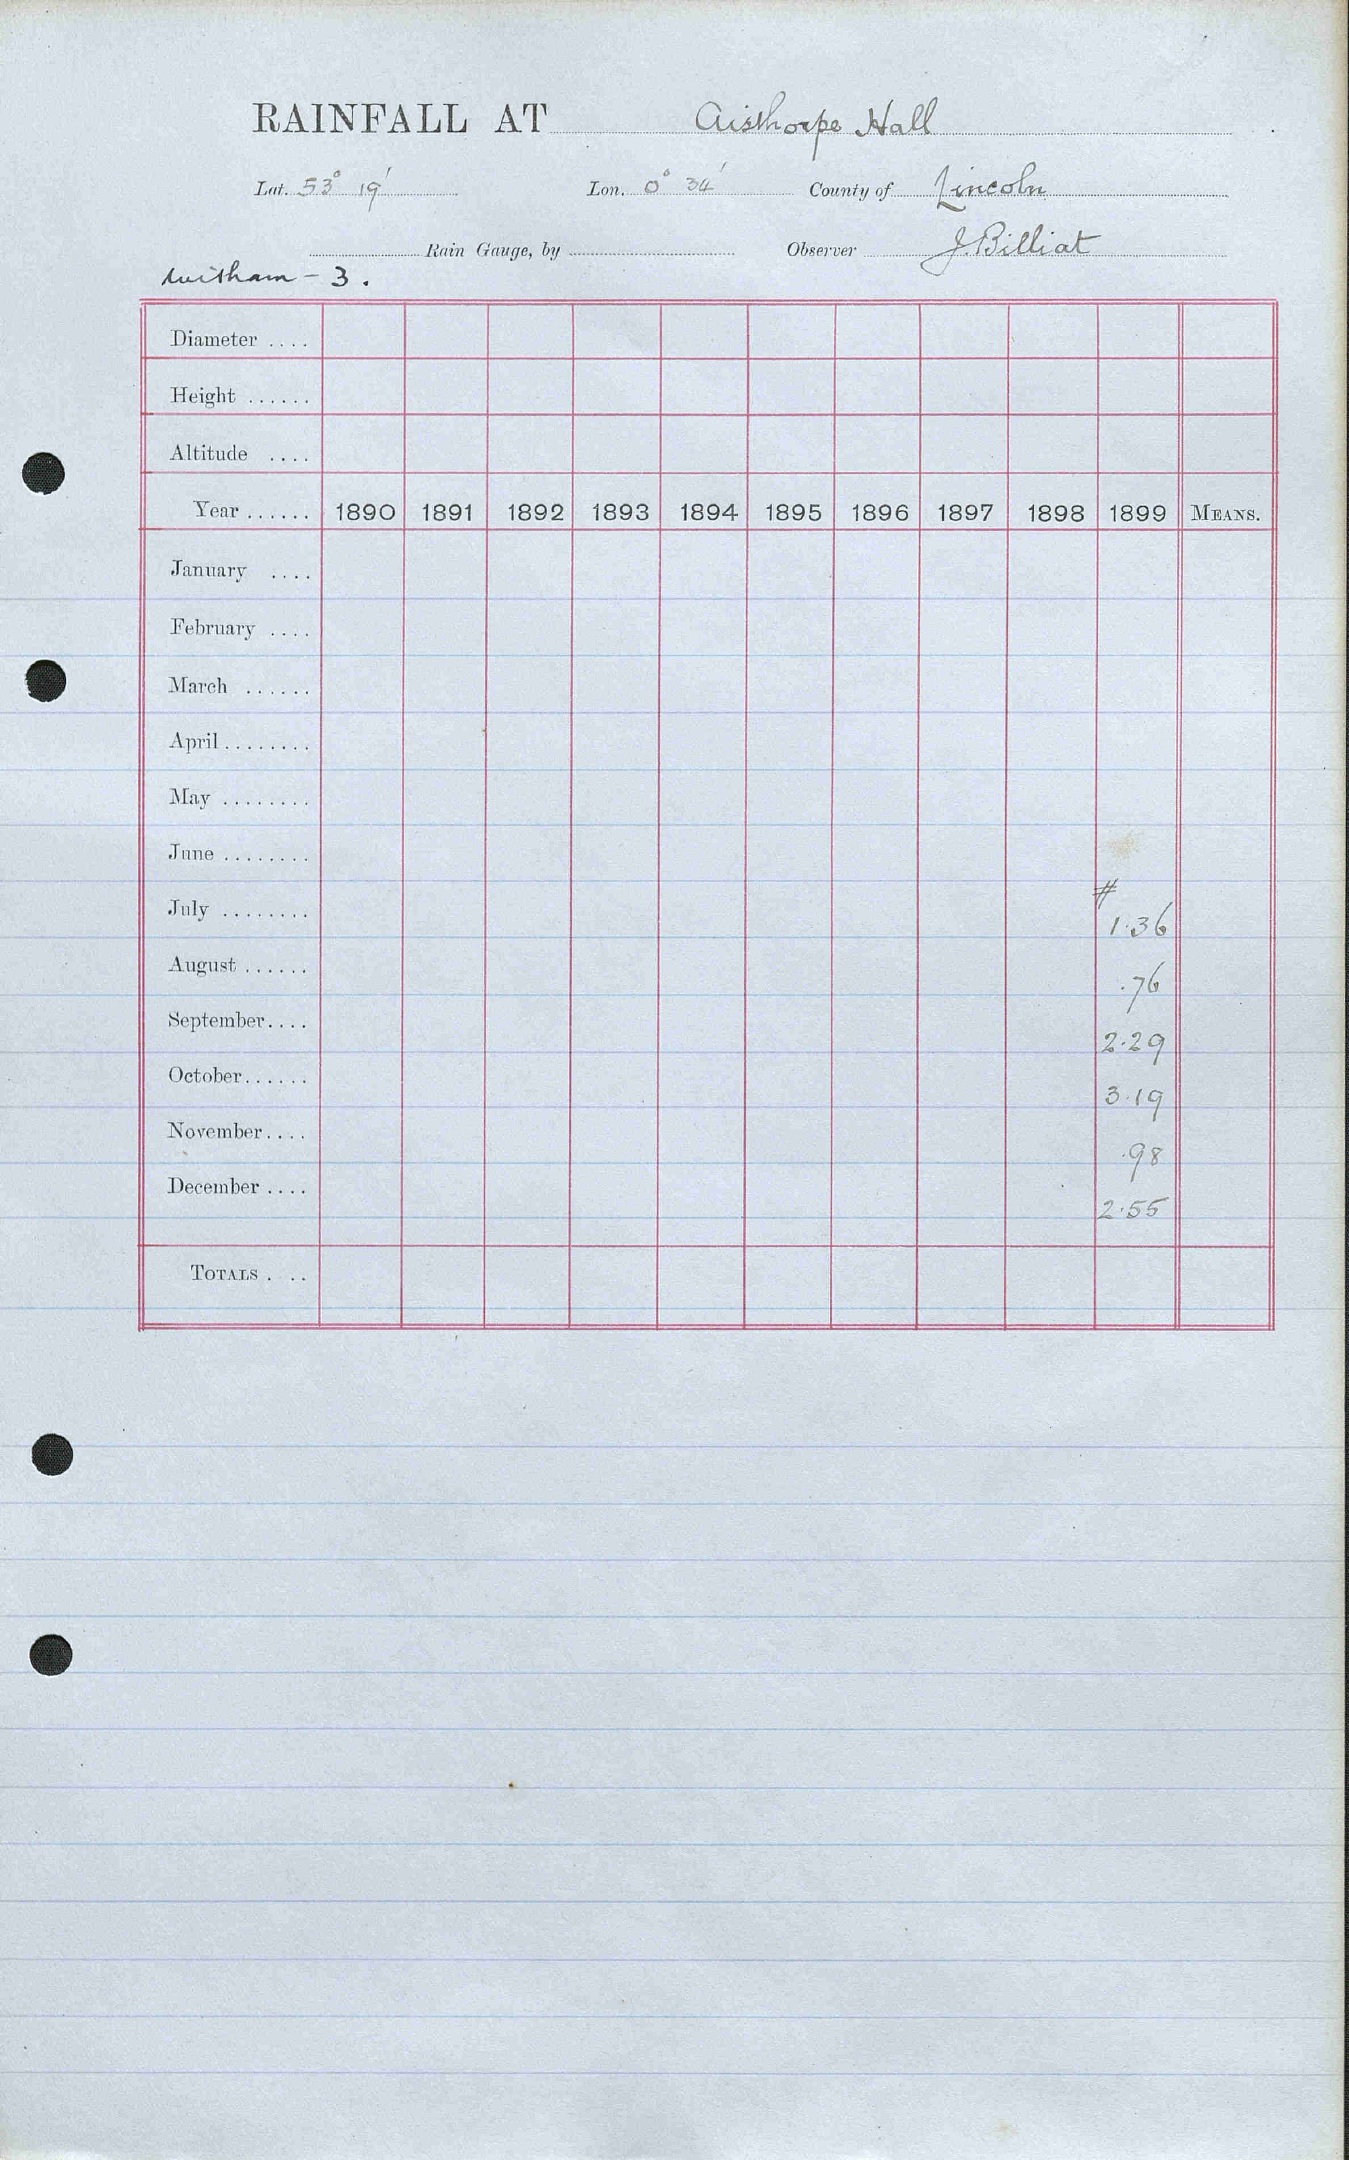 RAINFALL AT Aisthorpe Hall
Lat. 53° 19' Lon. 0° 34' County of Lincoln
Rain Gauge, by Observer J. Billiat
Witham - 3.
Diameter ....
Height ......
Altitude ....
Year ...... 1890 1891 1892 1893 1894 1895 1896 1897 1898 1899 MEANS.
January ....
February ....
March ......
April ........
May ........
June ........
#
July ........ 1.36
August ...... .76
September.... 2.29
October...... 3.19
November.... .98
December .... 2.55
TOTALS . ..